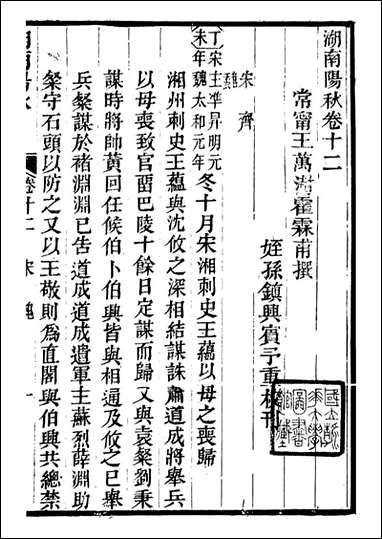 湖南陽秋卷十二
常甯王萬澍霍霖甫撰
姪孫鎮興賓予重校刊
宋 齊
魏
丁未 宋主準昇明元年 魏太和元年 冬十月宋湘刺史王蘊以母之喪歸
湘州刺史王蘊與沈攸之深相結謀誅肅道成將舉兵
以母喪致官畱巴陵十餘日定謀而歸又與袁粲劉秉
謀時將帥黃回任候伯卜伯興皆與相通及攸之已舉
兵粲謀於褚淵淵已告道成道成遺軍主蘇烈薛淵助
粲守石頭以防之又以王敬則為直閣與伯興共總禁
卷十二 宋 魏 一